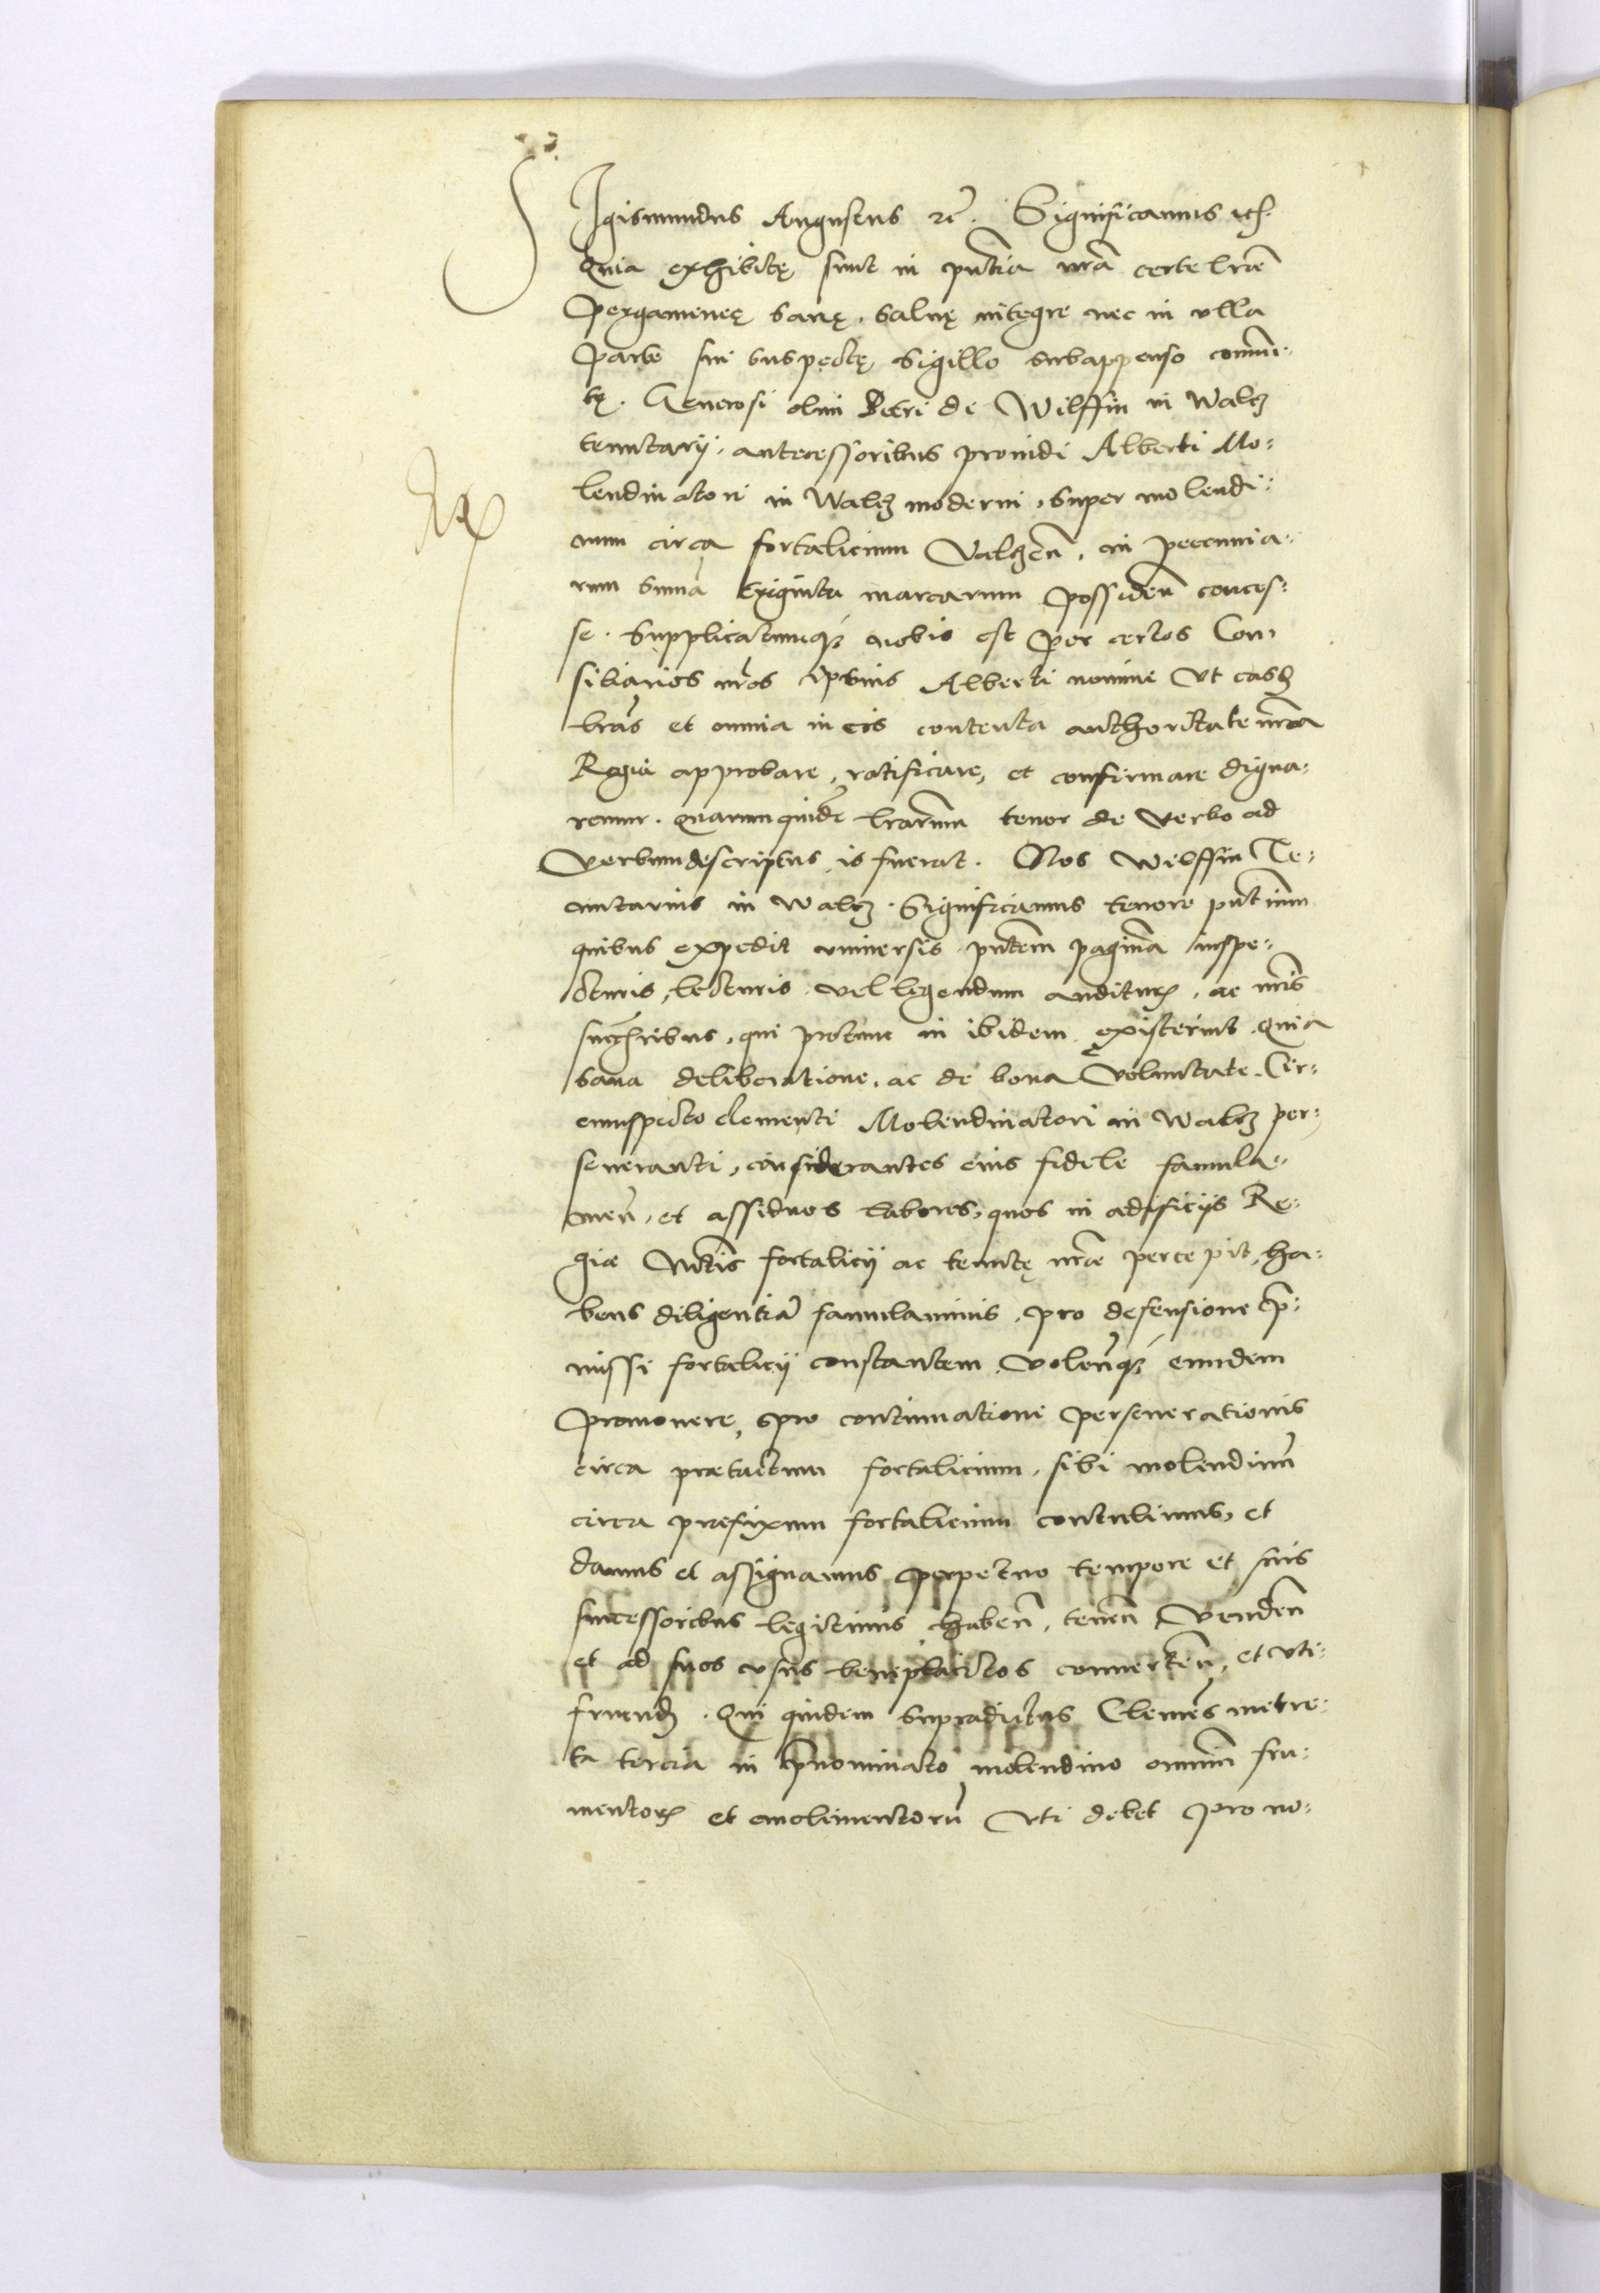 SIgismundus Augustus rē. Significamus etc.
Quia exhibitę sunt in pntia nrã certe lrae
Pergameneę sanę, salvę integre nec in ulla
parte sui suspectę sigillo subappenso commu-
tę. Generosi olim Petri de Wilssin in Walcz
tenutarij, antecessoribus providi Alberti Mo-
lendinatori in Walcz moderni, super molendi-
num circa fortalicium Valczen̄, in peccunia-
rum summa triginta marcarum possiden̄ conces-
se. Supplicatumque nobis est per certos Con-
siliarios nros ipsius Alberti nomine Ut easd
lras et omnia in eis contenta authoritate nra
Regia approbare, ratificare, et confirmare digna-
remur. quarumquidē lrarum tenor de verbo ad
verbum descriptus is fuerat. Nos Wilssin Te-
nutarius in Walcz. Significamus tenore pntium
quibus expedit universis pntem paginā inspe-
cturis, lecturis vel legendum audituris, ac nris
succribus, qui protunc in ibidem existerint. Quia
sana deliberatione, ac de bona voluntate. Cir-
cumspecto clementi Molendinatori in Walcz per-
severanti, considerantes eius fidele famula-
men̄, et assiduos labores, quos in ædificijs Re-
giæ Mtis fortalicij ac tenutę nræ percepit, ha-
bens diligentiā famulaminis, pro defensione p̄-
missi fortalicij constantem, Volen̄que eundem
promovere, pro continuatione perseverationis
circa prætactum fortalicium, sibi molendinū
circa prefixum fortalicium contulimus, et
damus et assignamus perpetuo tempore et suis
successoribus legitimis, haben̄, tenen̄, Venden̄
et ad suos usus beneplacitos converten̄, et uti-
fruend. Qui quidem supradictus Clemēs metre-
ta tercia in p̄nominato molendino omniū fru-
mentorum et emolimentorū Uti debet pro no-